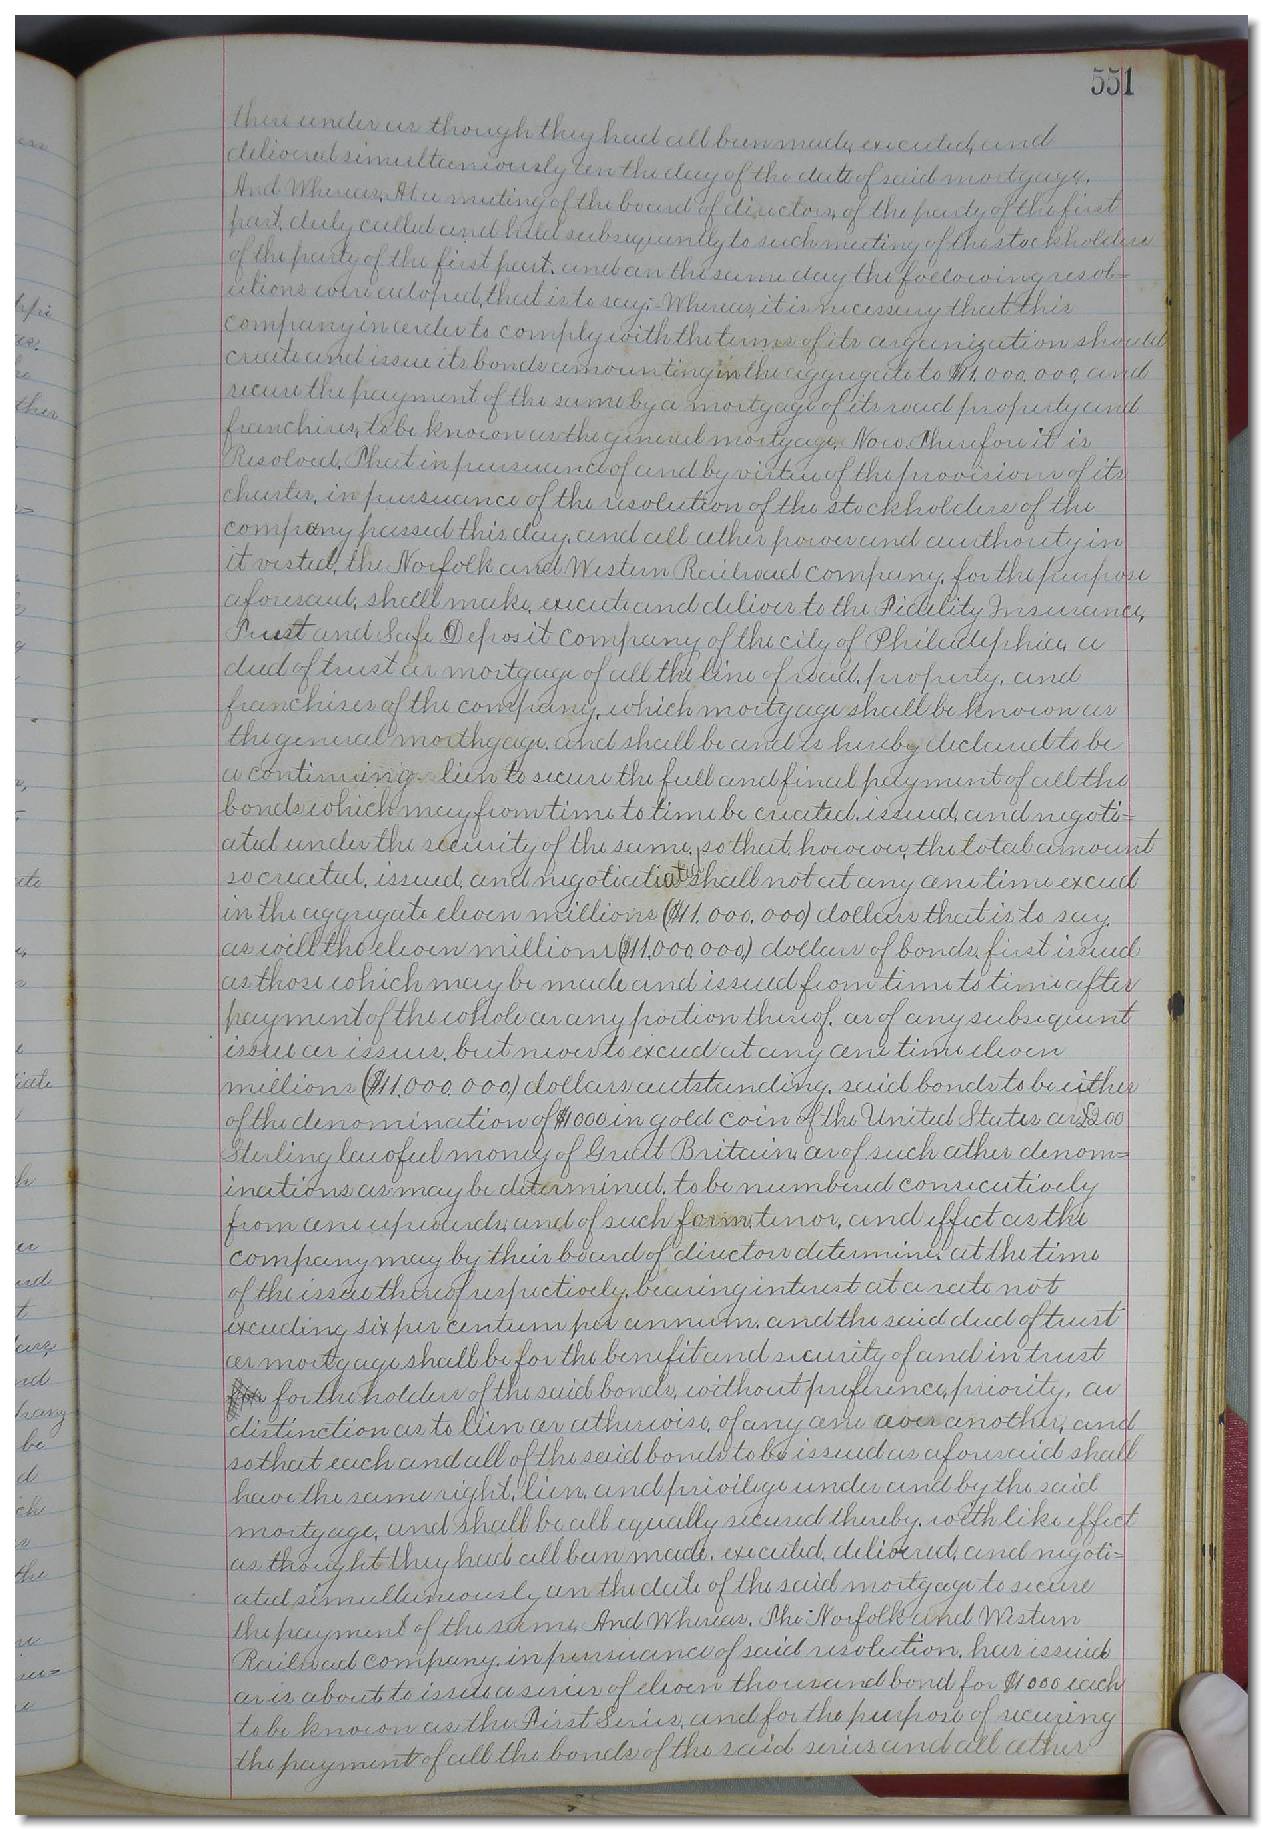 551
there under as though they had all been made, executed, and
delivered simultaneously on the day of the date of said mortgage.
And Whereas, At a meeting of the board of directors, of the party of the first
part, duly called and held subsequently to such meeting of the stockholders
of the party of the first part, and on the same day the following resol=
utions were adopted, that is to say:- Whereas, it is necessary that this
company in order to comply with the terms of its organization should
create and issue its bonds amounting in the aggregate to $11.000.000, and
secure the payment of the same by a mortgage of its road property and
franchises, to be known as the general mortgage. Now. Therefore it is
Resolved, That in pursuance of and by virtue of the provisions of its
charter, in pursuance of the resolution of the stockholders of the
company passed this day, and all other power and authority in
it vested, the Norfolk and Western Railroad company, for the purpose
aforesaid, shall make, execute and deliver to the Fidelity Insurance,
Trust and Safe Deposit company of the city of Philadelphia, a
deed of trust or mortgage of all the line of road, property, and
franchises of the company, which mortgage shall be known as
the general morthgage, and shall be and is hereby declared to be
a continuing lien to secure the full and final payment of all the
bonds which may from time to time be created, issued, and negoti=
ated under the security of the same, so that, however, the total amount
so created, issued, and negotiated shall not at any one time exceed
in the aggregate eleven millions ($11.000.000) dollars that is to say,
as well the eleven millions ($11.000.000) dollars of bonds, first issued
as those which may be made and issued from time to time after
payment of the whole or any portion thereof, or of any subsequent
issue or issues, but never to exceed at any one time eleven
millions ($11.000.000) dollars outstanding, said bonds to be either
of the denomination of $1000 in gold coin of the United States or £200
Sterling lawful money of Great Britain, or of such other denom=
inations as may be determined, to be numbered consecutively
from one upwards, and of such form, tenor, and effect as the
company may by their board of directors determine at the time
of the issue thereof respectively, bearing interest at a rate not
exceeding six per centum per annum, and the said deed of trust
or mortgage shall be for the benefit and security of and in trust
for the holders of the said bonds, without preference, priority, or
distinction as to lien or otherwise, of any one over another, and
so that each and all of the said bonds to be issued as aforesaid shall
have the same right, lien, and privilege under and by the said
mortgage, and shall be all equally secured thereby, with like effect
as thought they had all been made, executed, delivered, and negoti=
ated simultaneously on the date of the said mortgage to secure
the payment of the same. And Whereas, The Norfolk and Western
Railroad company, in pursuance of said resolution, has issued
or is about to issue a series of eleven thousand bond for $1000 each
to be known as the First Series, and for the purpose of securing
the payment of all the bonds of the said series and all other